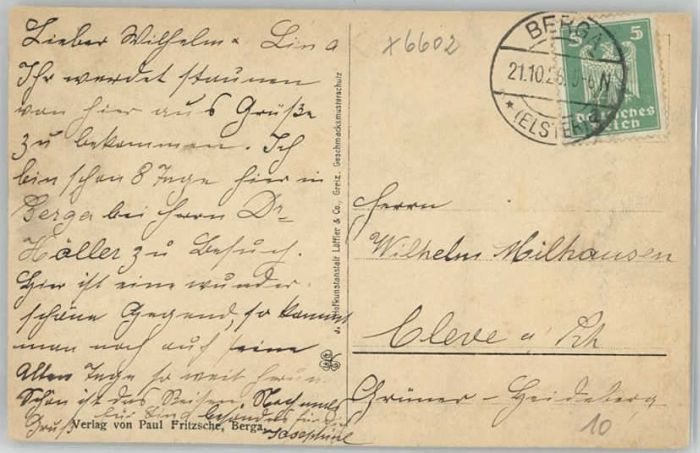 Lieber Wilhelm & Lina
Ihr werdet staunen
von hier aus Grüße
zu bekommen. Ich
bin schon 8 Tage hier in
Berga bei Herrn Dr
Höller zu Besuch.
Hier ist eine wunder
schöne Gegend, so kommt
man noch auf seine
Alten Tage so weit herum
Schön ist das Reisen. Nochmals
Gruß für Lina besonders für
Josephine
Verlag von Paul Fritzsche, Berga.
J. Lichtdruckkunstanstalt Löffler & Co., Greiz. Geschmacksmusterschutz
x6602
BERGA
21.10.26. N
* (ELSTER)
5 5
Deutsches
Reich
Herrn
Wilhelm Milhausen
Cleve a/Rh
Grüner-Heideberg
10